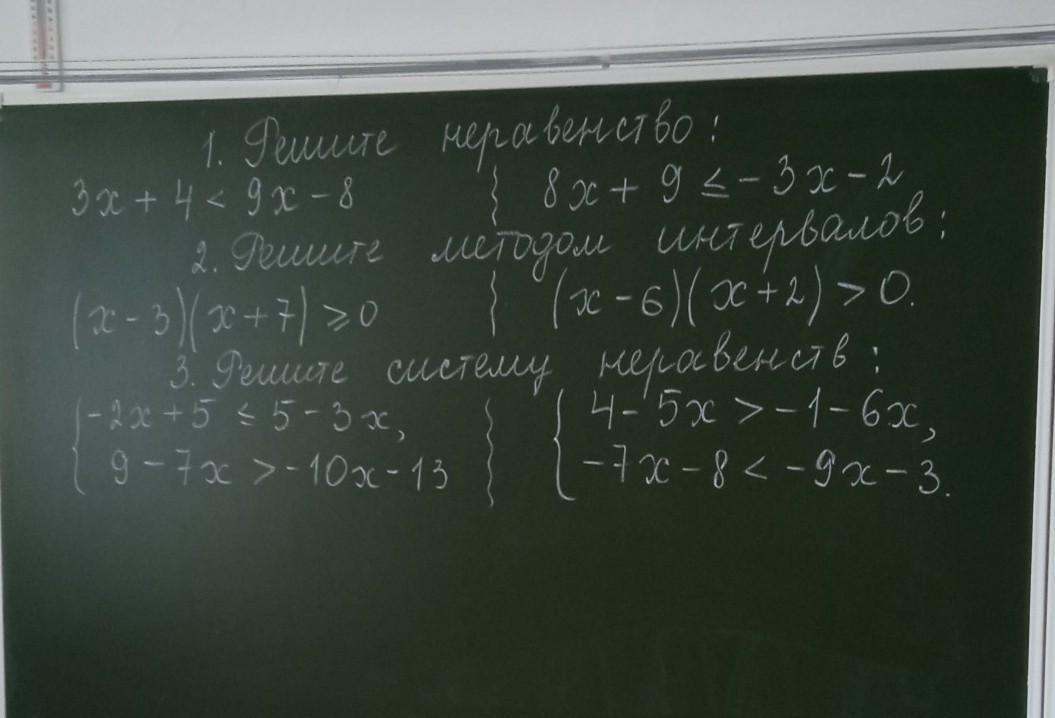 1. Решите неравенство:
3x + 4 < 9x - 8 } 8x + 9 ≤ -3x - 2
2. Решите методом интервалов:
(x - 3)(x + 7) ≥ 0 } (x - 6)(x + 2) > 0.
3. Решите систему неравенств:
{ -2x + 5 ≤ 5 - 3x, } { 4 - 5x > -1 - 6x,
9 - 7x > -10x - 13 -7x - 8 < -9x - 3.